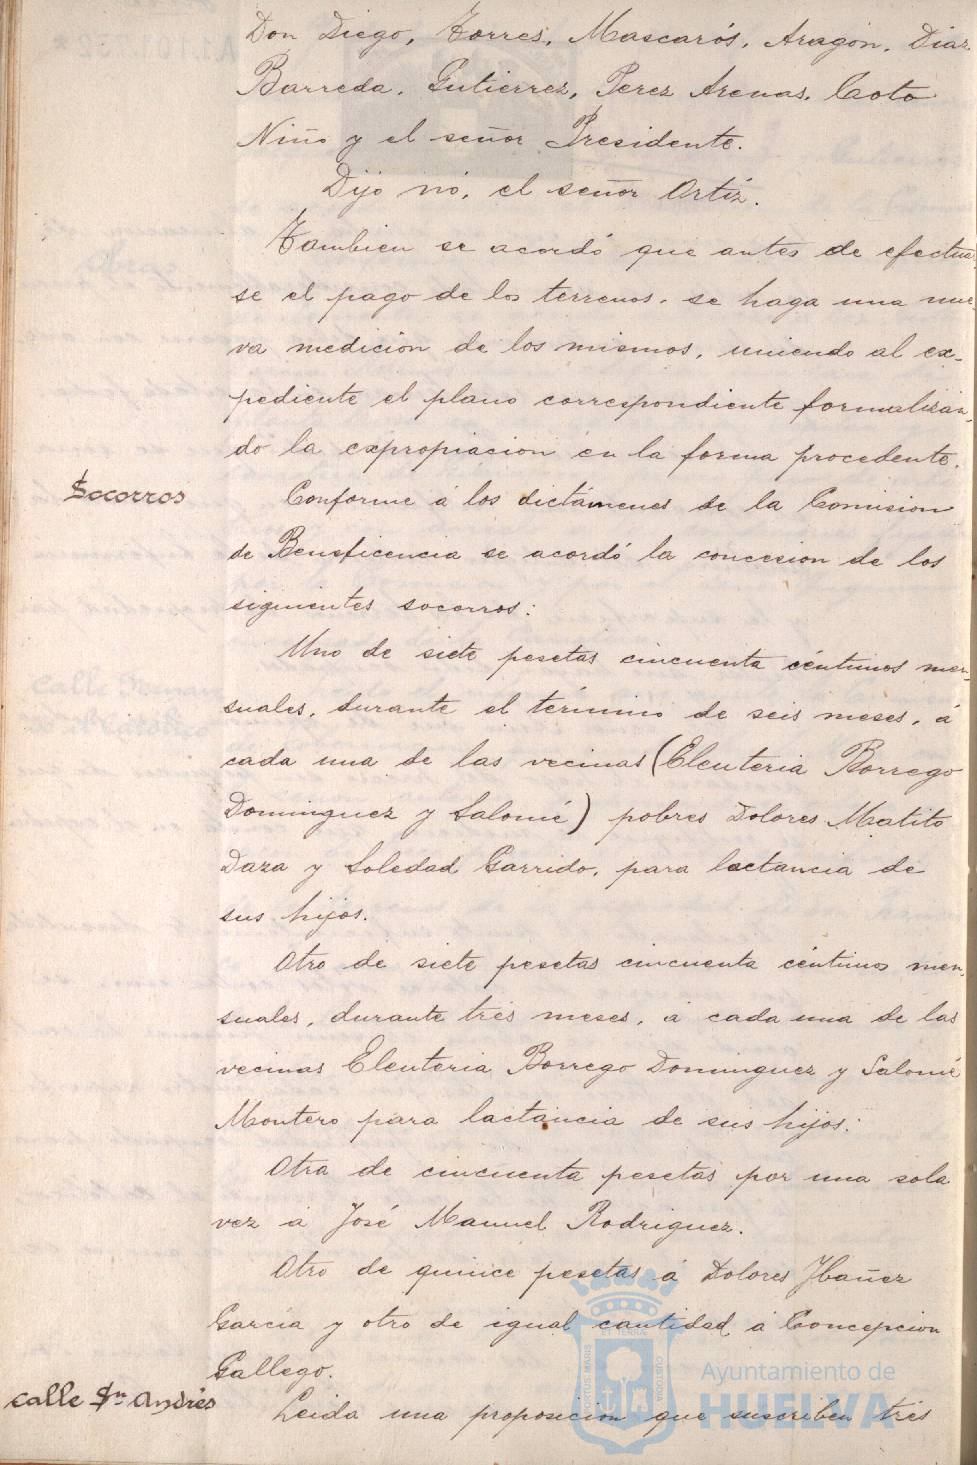 Don Diego, Torres, Mascarós, Aragón, Diaz
Barreda, Gutierrez, Perez Arenas, Coto
Niño y el señor Presidente.
Dijo nó, el señor Ortiz.
Tambien se acordó que antes de efectuar
se el pago de los terrenos, se haga una nue
va medicion de los mismos, uniendo al ex-
pediente el plano correspondiente formalizan-
do la expropiacion en la forma procedente.
Socorros
Conforme á los dictámenes de la Comision
de Beneficencia se acordó la concesion de los
siguientes socorros:
Uno de siete pesetas cincuenta céntimos men-
suales, durante el término de seis meses, á
cada una de las vecinas (Eleuteria Borrego
Dominguez y Salomé) pobres Dolores Matito
Daza y Soledad Garrido, para lactancia de
sus hijos.
Otro de siete pesetas cincuenta céntimos men-
suales, durante tres meses, á cada una de las
vecinas Eleuteria Borrego Dominguez y Salomé
Montero para lactancia de sus hijos.
Otra de cincuenta pesetas por una sola
vez á José Manuel Rodriguez.
Otro de quince pesetas á Dolores Ybañez
García y otro de igual cantidad á Concepcion
Gallego.
calle Sn Andrés
Leida una proposicion que suscriben tres
PORTUS MARIS ET TERRÆ CUSTODIA
Ayuntamiento de
HUELVA